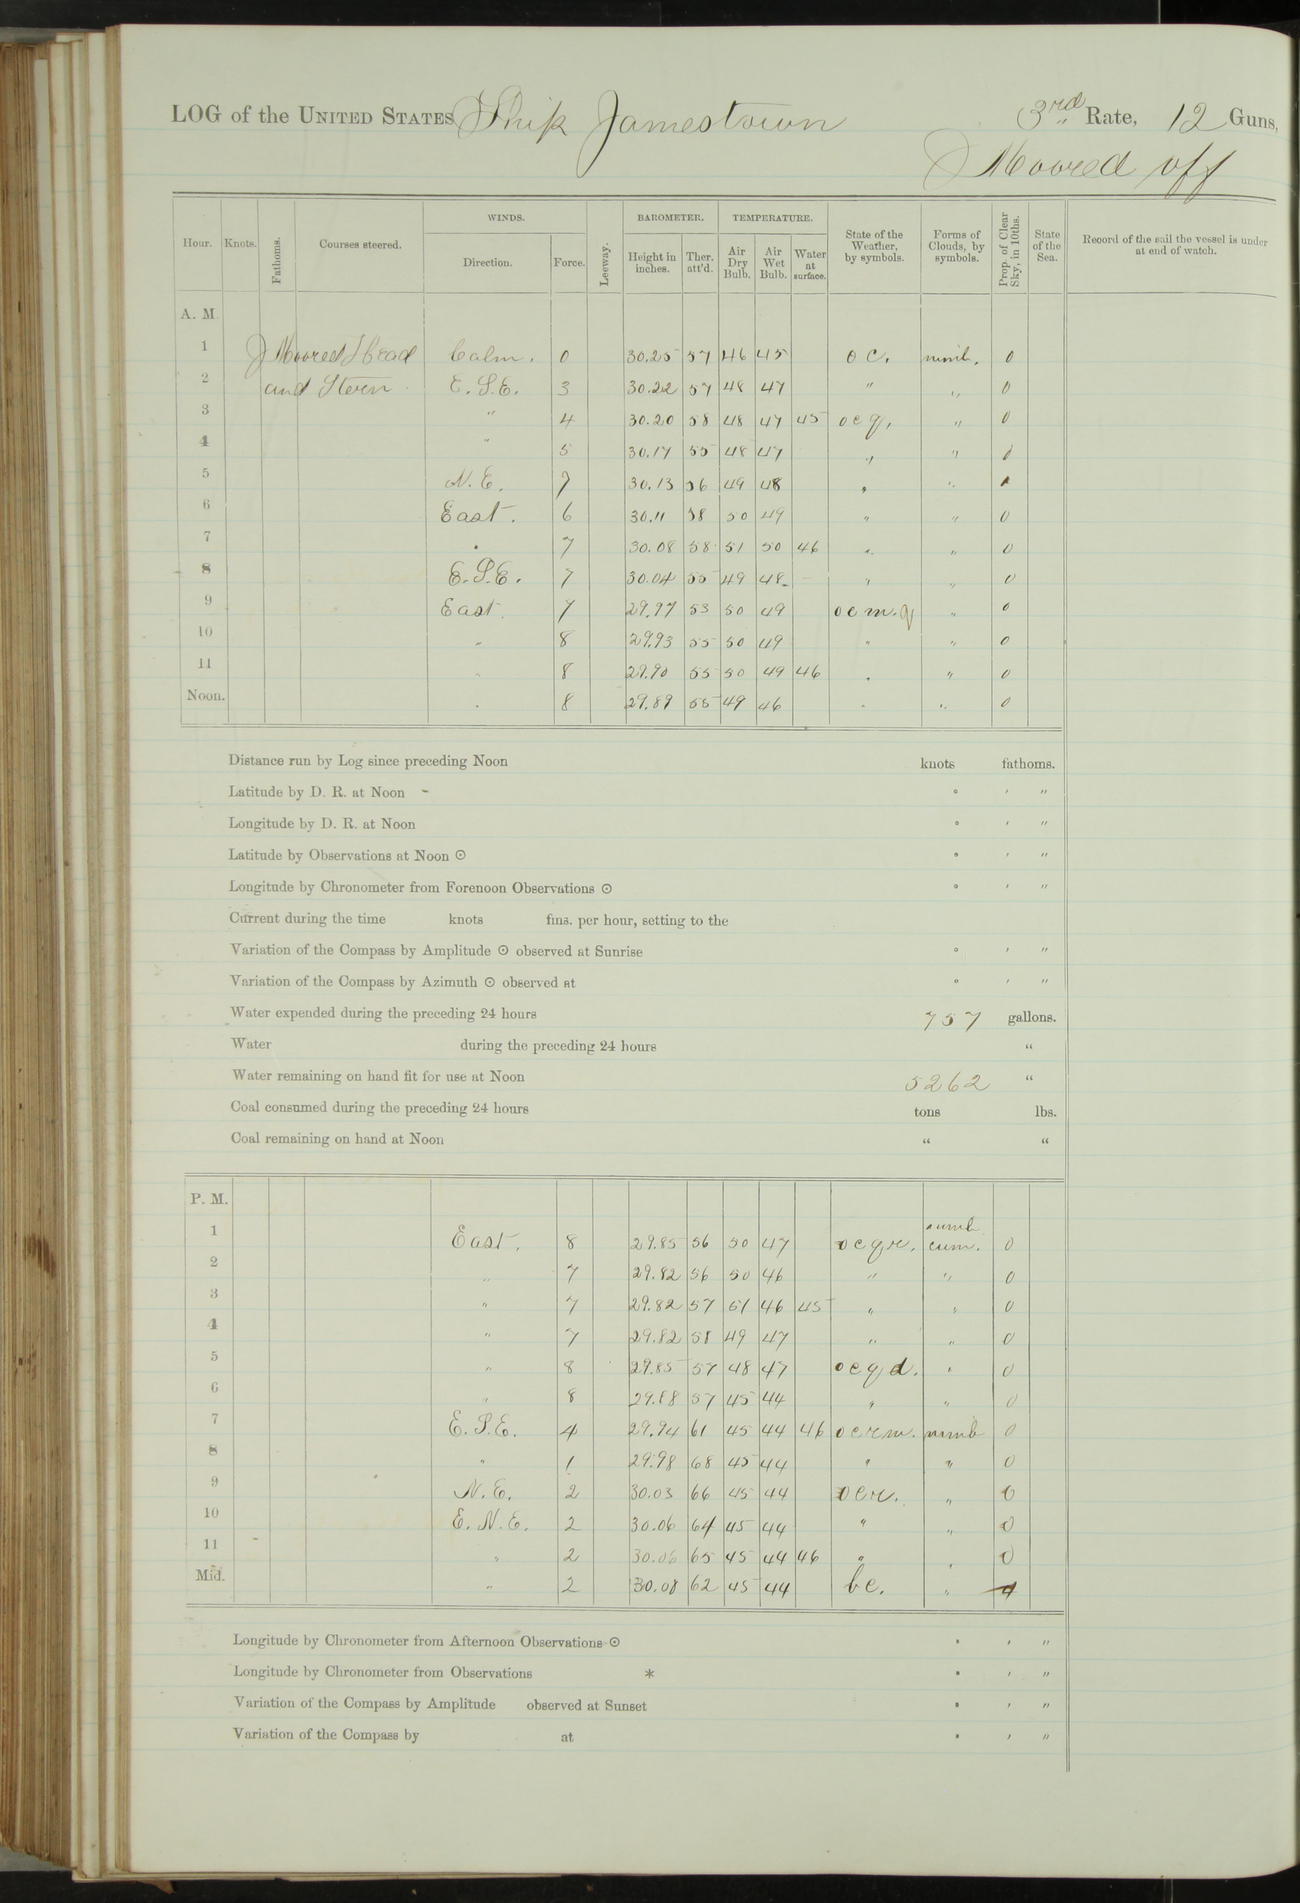 LOG of the UNITED STATES Ship Jamestown 3rd Rate, 12 Guns,
Moored off
Hour. Knots. Fathoms. Courses steered. WINDS. Direction. Force. Leeway. BAROMETER. Height in inches. Ther. att'd. TEMPERATURE. Air Dry Bulb. Air Wet Bulb. Water at surface. State of the Weather, by symbols. Forms of Clouds, by symbols. Prop. of Clear Sky, in 10ths. State of the Sea. Record of the sail the vessel is under at end of watch.
A. M.
1 Moored Head Calm. 0 30.25 57 46 45 o c. nimb. 0
2 and Stern E.S.E. 3 30.22 57 48 47 " " 0
3 " 4 30.20 58 48 47 45 o c q, " 0
4 " 5 30.17 55 48 47 " " 0
5 N.E. 7 30.13 56 49 48 " "
6 East. 6 30.11 58 50 49 " " 0
7 " 7 30.08 58 51 50 46 " " 0
8 E.S.E. 7 30.04 55 49 48 " " 0
9 East. 7 29.97 53 50 49 o c m. q " 0
10 " 8 29.93 55 50 49 " " 0
11 " 8 29.90 55 50 49 46 " " 0
Noon. " 8 29.89 55 49 46 " " 0
Distance run by Log since preceding Noon knots fathoms.
Latitude by D. R. at Noon - ° ' "
Longitude by D. R. at Noon ° ' "
Latitude by Observations at Noon ☉ ° ' "
Longitude by Chronometer from Forenoon Observations ☉ ° ' "
Current during the time knots fms. per hour, setting to the
Variation of the Compass by Amplitude ☉ observed at Sunrise ° ' "
Variation of the Compass by Azimuth ☉ observed at ° ' "
Water expended during the preceding 24 hours 757 gallons.
Water during the preceding 24 hours "
Water remaining on hand fit for use at Noon 5262 "
Coal consumed during the preceding 24 hours tons lbs.
Coal remaining on hand at Noon " "
P. M.
nimb
1 East. 8 29.85 56 50 47 o c q r. cum. 0
2 " 7 29.82 56 50 46 " " 0
3 " 7 29.82 57 51 46 45 " " 0
4 " 7 29.82 58 49 47 " " 0
5 " 8 29.85 57 48 47 o c q d. " 0
6 " 8 29.88 57 45 44 " " 0
7 E.S.E. 4 29.94 61 45 44 46 o c r m. nimb 0
8 " 1 29.98 68 45 44 " " 0
9 N.E. 2 30.03 66 45 44 o c r. " 0
10 E.N.E. 2 30.06 64 45 44 " " 0
11 " 2 30.06 65 45 44 46 " " 0
Mid. " 2 30.08 62 45 44 b c. " 4
Longitude by Chronometer from Afternoon Observations ☉ ° ' "
Longitude by Chronometer from Observations * ° ' "
Variation of the Compass by Amplitude observed at Sunset ° ' "
Variation of the Compass by at ° ' "